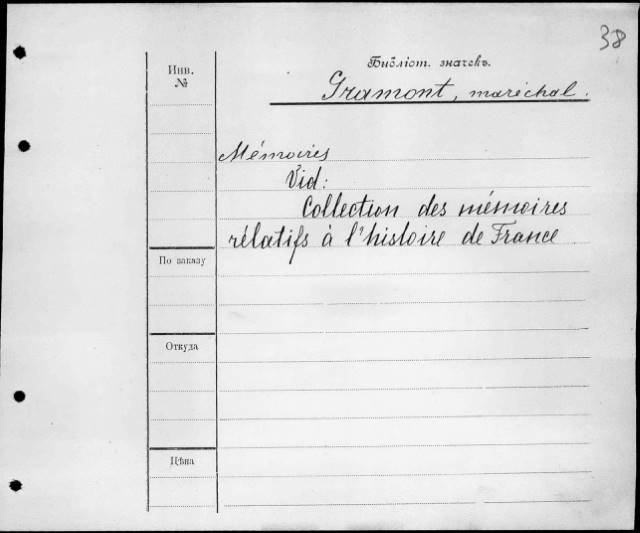 38
Библіот. значекъ.
Инв.
№
Gramont, maréchal.
Mémoires
Vid:
Collection des mémoires
rélatifs à l'histoire de France
По заказу
Откуда
Цѣна